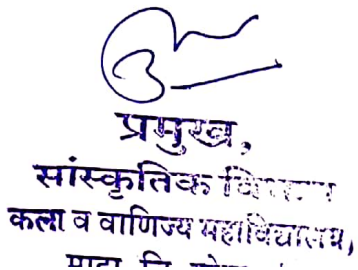 प्रमुख,
सांस्कृतिक विभाग
कला व वाणिज्य महाविद्यालय,
माढा जि.